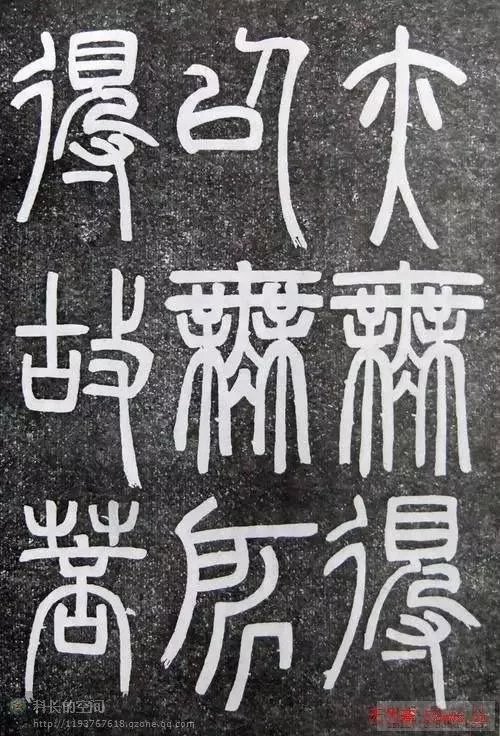 亦無得
以無所
得故菩
科长的空间
http://1193767618.qzone.qq.com